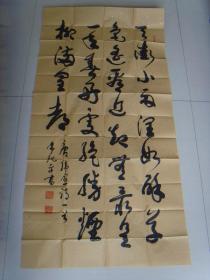 天街小雨润如酥草
色遥看近却无最是
一年春好处绝胜烟
柳满皇都
唐韩愈诗一首